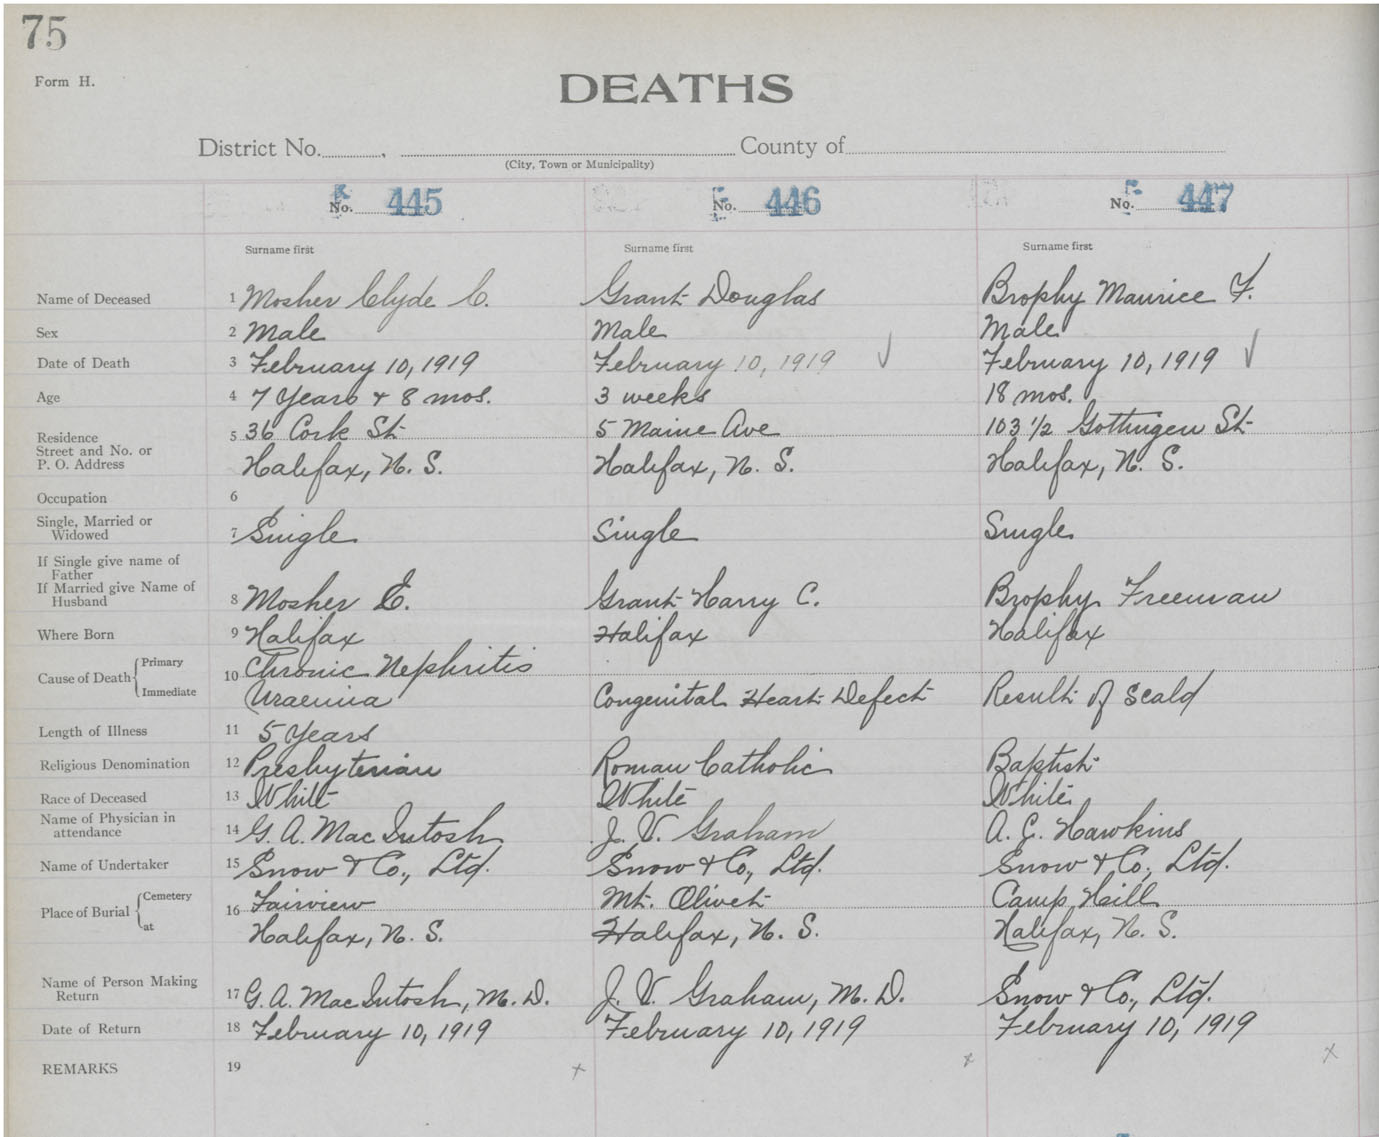 75
Form H.
DEATHS
District No. , County of
(City, Town or Municipality)
No. 445 No. 446 No. 447
Surname first Surname first Surname first
Name of Deceased 1 Mosher Clyde C. Grant Douglas Brophy Maurice F.
Sex 2 Male Male Male
Date of Death 3 February 10, 1919 February 10, 1919 ✓ February 10, 1919 ✓
Age 4 7 Years + 8 mos. 3 weeks 18 mos.
Residence 5 36 Cork St 5 Maine Ave 103 1/2 Gottingen St
Street and No. or
P. O. Address Halifax, N. S. Halifax, N. S. Halifax, N. S.
Occupation 6
Single, Married or
Widowed 7 Single Single Single
If Single give name of
Father
If Married give Name of
Husband 8 Mosher E. Grant Harry C. Brophy Freeman
Where Born 9 Halifax Halifax Halifax
Cause of Death Primary 10 Chronic Nephritis
Immediate Uraemia Congenital Heart Defect Result of Scald
Length of Illness 11 5 Years
Religious Denomination 12 Presbyterian Roman Catholic Baptist
Race of Deceased 13 White White White
Name of Physician in
attendance 14 G. A. MacIntosh J. V. Graham A. C. Hawkins
Name of Undertaker 15 Snow & Co., Ltd. Snow & Co., Ltd. Snow & Co., Ltd.
Place of Burial Cemetery 16 Fairview Mt. Olivet Camp Hill
at Halifax, N. S. Halifax, N. S. Halifax, N. S.
Name of Person Making
Return 17 G. A. MacIntosh, M. D. J. V. Graham, M. D. Snow & Co., Ltd.
Date of Return 18 February 10, 1919 February 10, 1919 February 10, 1919
REMARKS 19 x x x